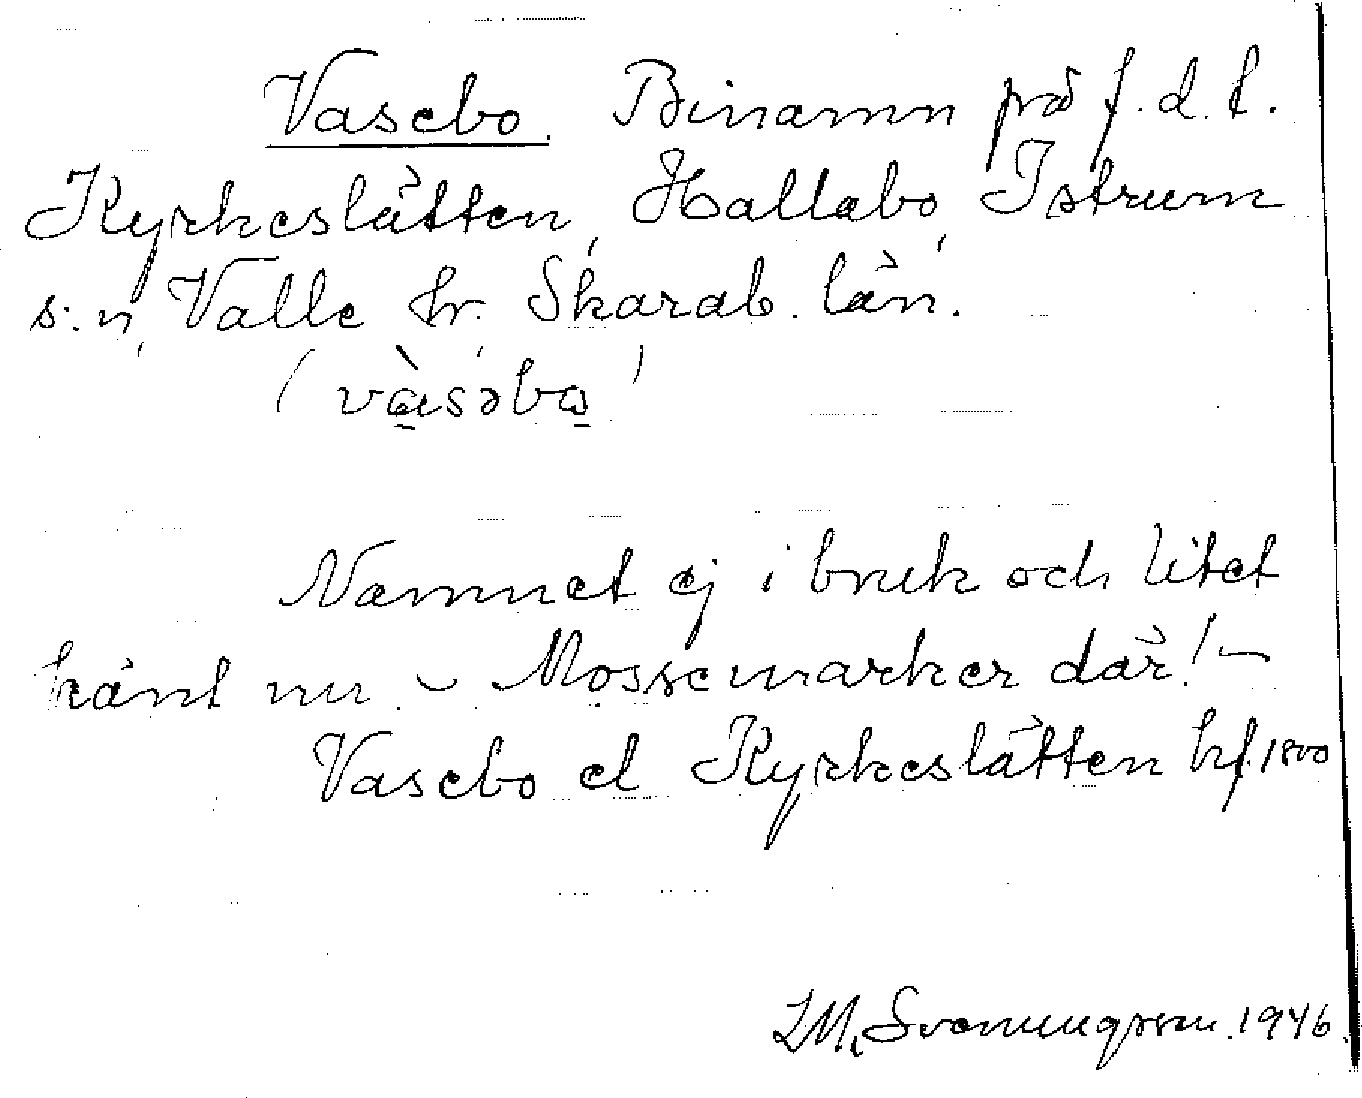 Vasebo. Binamn på f.d.t.
Kyrkeslätten, Hallebo, Istrum
s:n, Valle hr. Skarab. län.
(vàsəbo)
Namnet ej i bruk och litet
känt nu. – Mossemarker där! –
Vasebo el Kyrkeslätten hf. 1800
Svenungsson. 1946